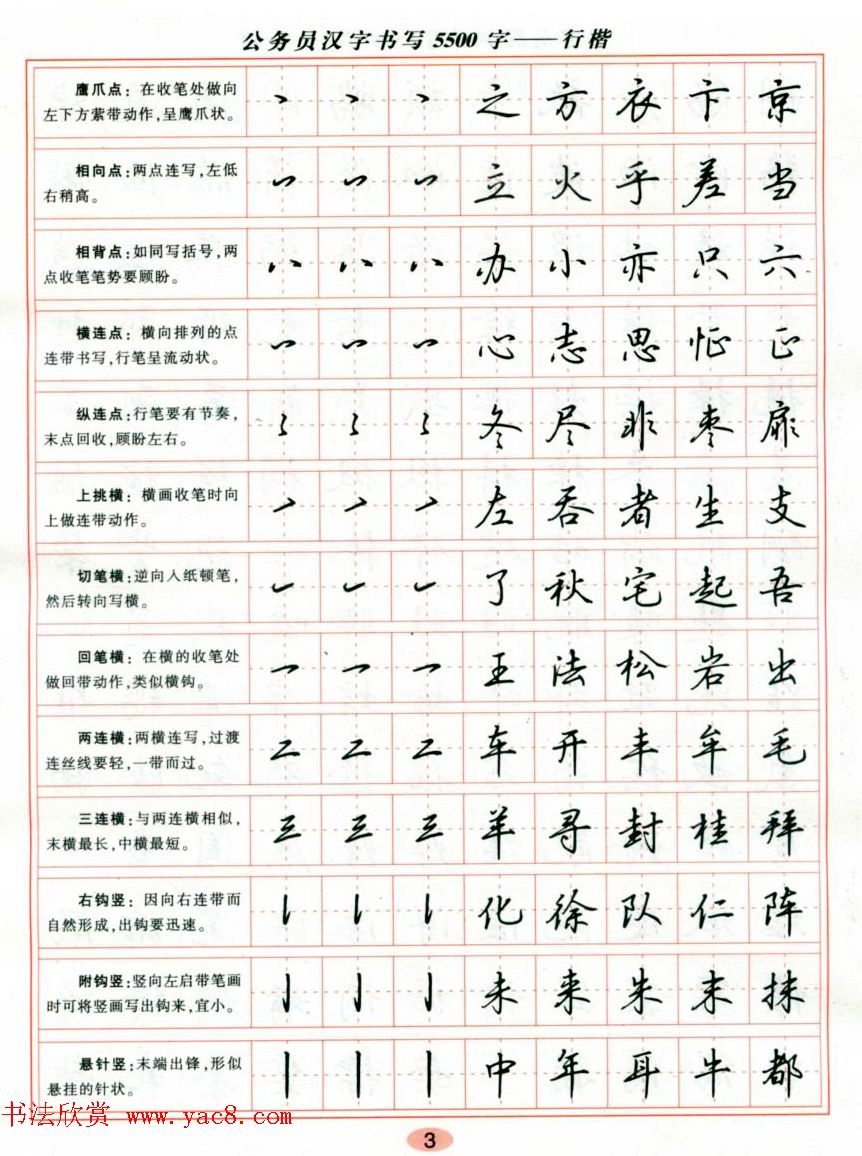 公务员汉字书写 5500 字——行楷
鹰爪点：在收笔处做向
左下方萦带动作，呈鹰爪状。
丶 丶 丶 之 方 衣 卞 京
相向点：两点连写，左低
右稍高。
立 火 乎 差 当
相背点：如同写括号，两
点收笔笔势要顾盼。
八 八 八 办 小 亦 只 六
横连点：横向排列的点
连带书写，行笔呈流动状。
心 志 思 怔 正
纵连点：行笔要有节奏，
末点回收，顾盼左右。
冬 尽 非 枣 扉
上挑横：横画收笔时向
上做连带动作。
左 吞 者 生 支
切笔横：逆向入纸顿笔，
然后转向写横。
了 秋 宅 起 吾
回笔横：在横的收笔处
做回带动作，类似横钩。
王 法 松 岩 出
两连横：两横连写，过渡
连丝线要轻，一带而过。
二 二 二 车 开 丰 牟 毛
三连横：与两连横相似，
末横最长，中横最短。
三 三 三 羊 寻 封 桂 拜
右钩竖：因向右连带而
自然形成，出钩要迅速。
化 徐 队 仁 阵
附钩竖：竖向左启带笔画
时可将竖画写出钩来，宜小。
亅 亅 亅 未 来 朱 末 抹
悬针竖：末端出锋，形似
悬挂的针状。
丨 丨 丨 中 年 耳 牛 都
书法欣赏 www.yac8.com
3